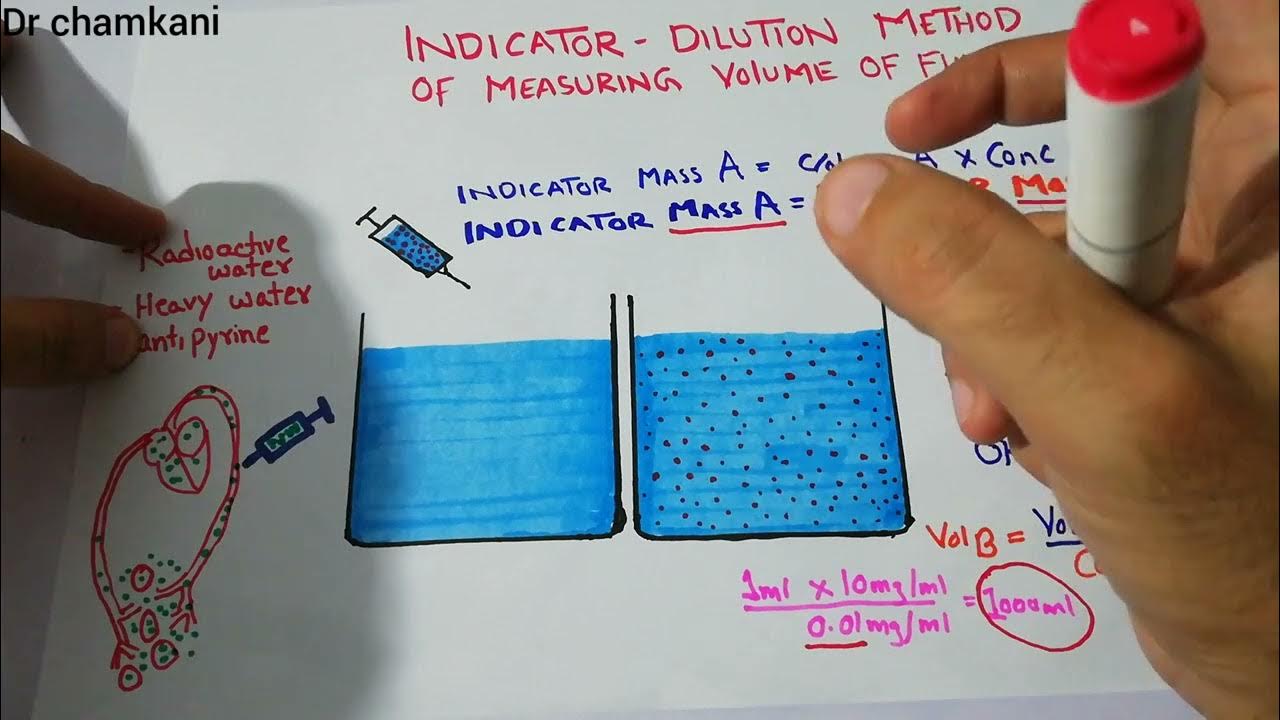 Dr chamkani
INDICATOR - DILUTION METHOD
OF MEASURING VOLUME OF
INDICATOR MASS A = A x Conc
INDICATOR MASS A =
- Radioactive
water
Heavy water
antipyrine
Vol B =
1ml x 10mg/ml
0.01mg/ml
= 1000ml